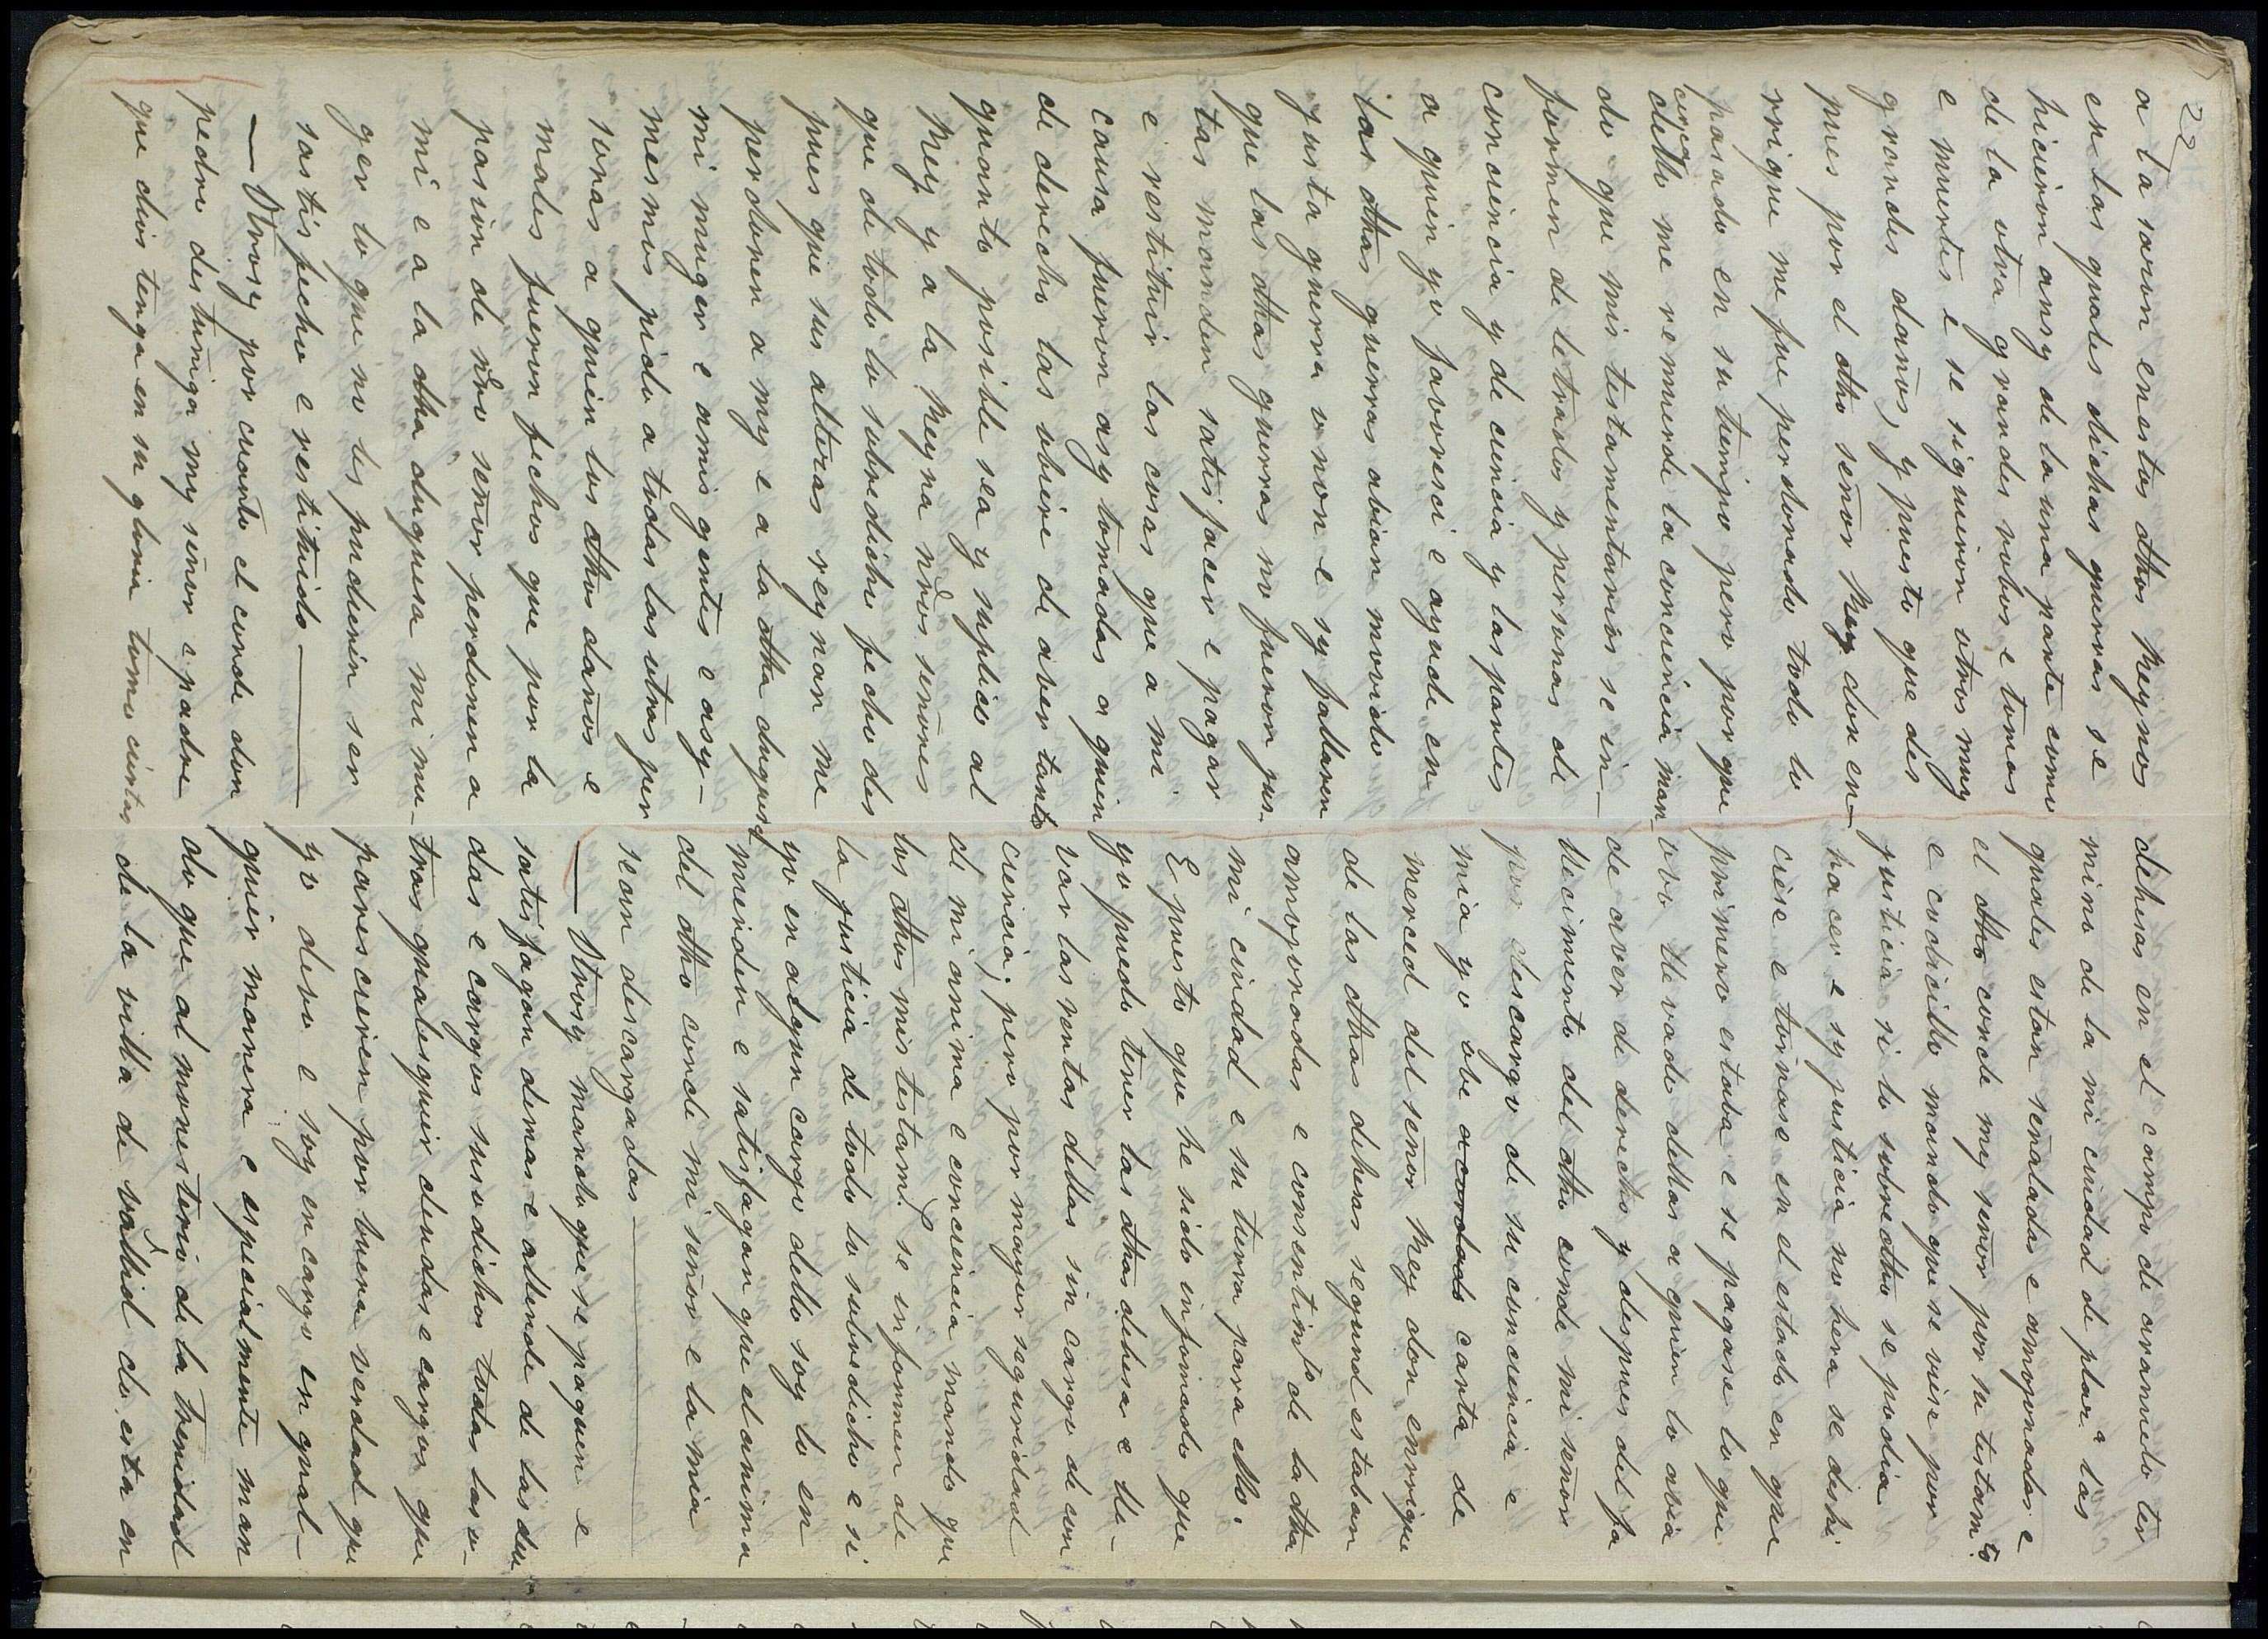 22
a la sason en estos dhos Reynos
en las quales dichas guerras se
hicieron ansy de la una parte como
de la otra grandes robos e tomas
e muertes e se siguieron otros muy
grandes daños, y puesto que des
pues por el dho señor Rey don en-
rrique me fue perdonado todo lo
pasado en su tiempo pero por que
cerca dello me remuerde la conciencia man-
do que mis testamentarios se in-
formen de letrados y personas de
conciencia y de ciencia y las partes
a quien yo favoresci e ayude en
las dhas guerras abian movido
justa guerra o non e sy fallaren
que las dhas guerras no fueron jus-
tas manden satisfacer e pagar
e restituir las cosas que a mi
causa fueron asy tomadas a quien
de derecho las obiere de aver tanto
quanto posible sea y suplico al
Rey y a la Reyna nros señores
que de todo lo sobredicho fecho des
pues que sus altezas reynan me
perdonen a my e a la dha duquesa
mi muger e a mis gentes e asy-
mesmos pido a todas las otras per
sonas a quien los dhos daños e
males fueron fechos que por la
pasion de nro señor perdonen a
mi e a la dha duquesa mi mu-
ger lo que no les pudieren ser
sastisfecho e restituido
— Otrosy por cuanto el conde don
pedro destuñiga my señor e padre
que dios tenga en su gloria tomo ciertas
dehesas en el campo de arañuelo ter
mino de la mi ciudad de plaz.a las
quales estan señaladas e amojonadas e
el dho conde my señor por su testam.to
e codicillo mando que se viese por
justicia si lo sobre dho se podia
hacer e sy justicia no hera se deshi
ciese e tornase en el estado en que
primero estaba e se pagase lo que
ovo llevado dellas a quien lo abia
de aver de derecho y despues del fa
llecimento del dho conde mi señor
por descargo de su conciencia e
mia yo obe acordado carta de
merced del señor Rey don enrrique
de las dhas dehesas segund estaban
amojonadas e consentim.to de la dha
mi ciudad e su tierra para ello.
E puesto que he sido informado que
yo puedo tener las dhas dehesas e lle-
var las rentas dellas sin cargo de con
ciencia; pero por mayor seguridad
de mi anima e conciencia mando que
los dhos mis testam.os se informen de
la justicia de todo lo sobredicho e si
yo en algun cargo dello soy lo en
mienden e satisfagan que el anima
del dho conde mi señor e la mia
sean descargadas
— Otrosy mando que se paguen e
satisfagan demas e allende de las deu
das e cargos susodichos todas las o-
tras qualesquier deudas e cargos que
parescieren por buena verdad que
yo devo e soy en cargo en qual-
quier manera e especialmente man
do que al monesterio de la trenidad
de la villa de vallid do esta en